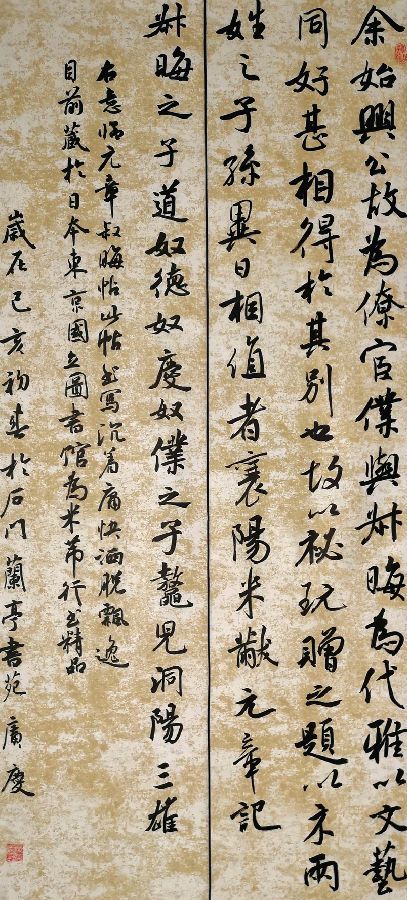 余始興公故為僚官僕與叔晦為代雅以文藝
同好甚相得於其別也故以祕玩贈之題以示兩
姓之子孫異日相值者襄陽米黻元章記
叔晦之子道奴德奴慶奴僕之子鼇兒洞陽三雄
右意临元章叔晦帖此帖书写沉着痛快洒脫飄逸
目前藏於日本東京國立圖書館為米芾行书精品
歲在己亥初春於石门蘭亭書苑廣慶